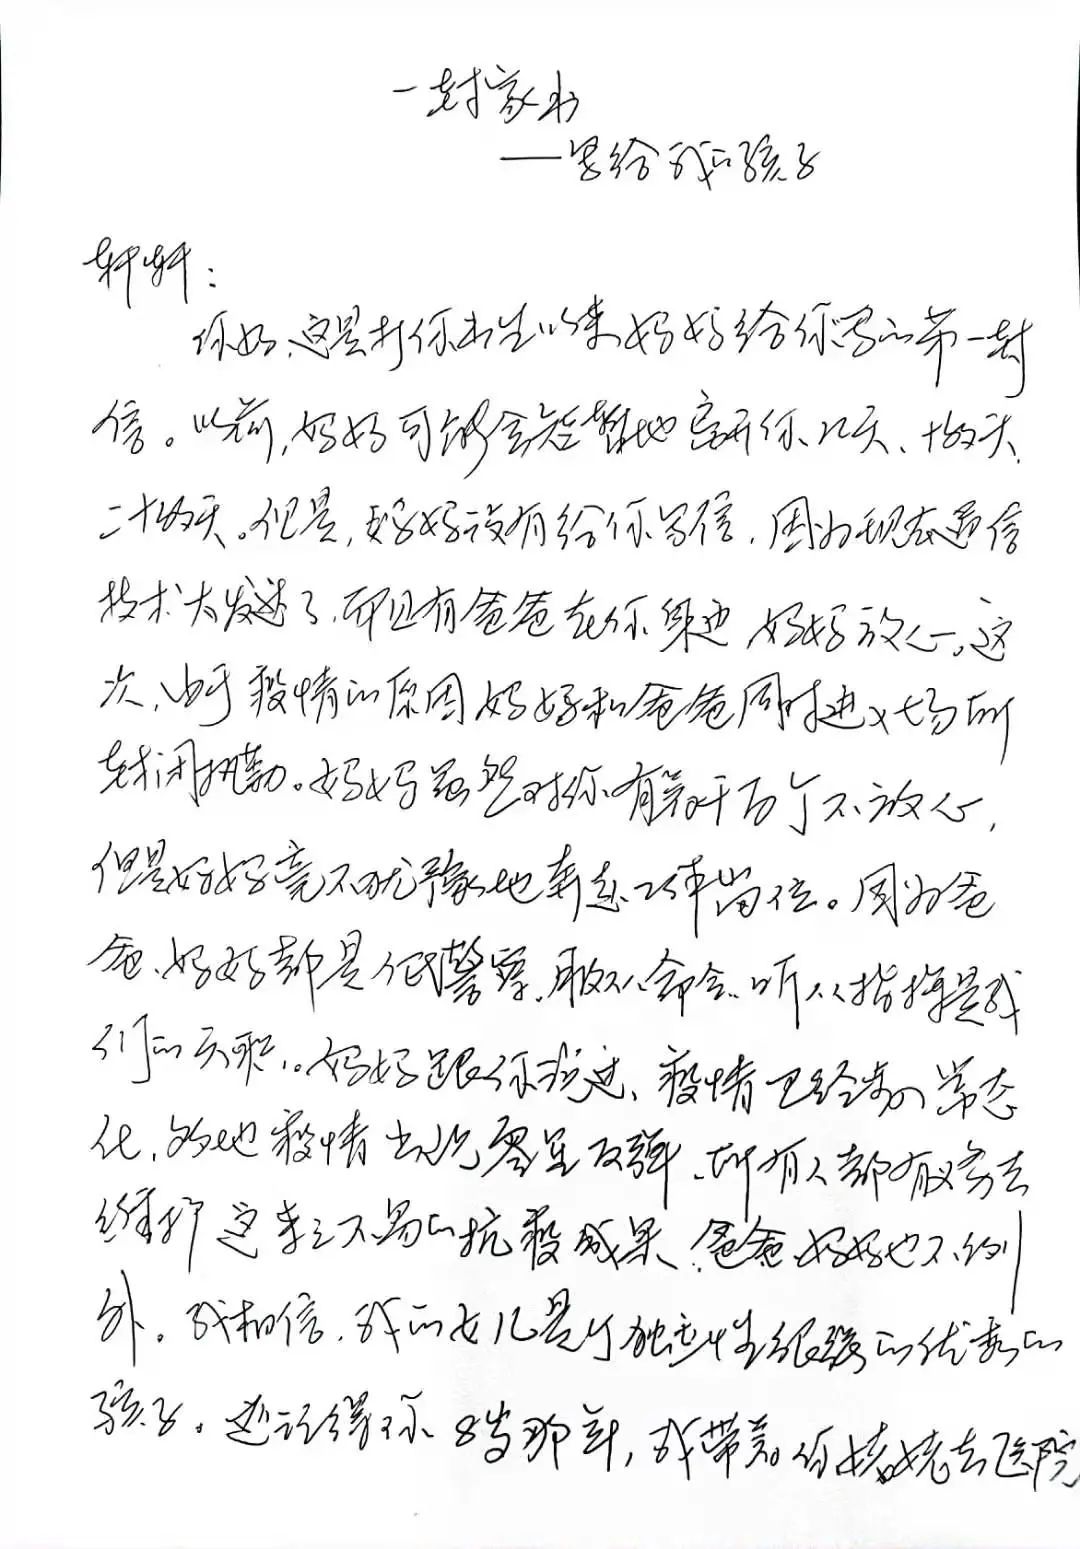 一封家书
——写给我的孩子
轩轩：
你好，这是打你出生以来妈妈给你写的第一封
信。以前，妈妈可能会短暂地离开你几天、十几天、
二十几天。但是，妈妈没有给你写信，因为现在通信
技术太发达了，而且有爸爸在你身边，妈妈放心。这
次，由于疫情的原因妈妈和爸爸同时进入场所
封闭执勤。妈妈虽然对你有着千百个不放心，
但是妈妈毫不犹豫地奔赴工作岗位。因为爸
爸、妈妈都是人民警察，服从命令、听从指挥是我
们的天职。妈妈跟你说过，疫情已经步入常态
化，多地疫情出现零星反弹，所有人都有义务去
维护这来之不易的抗疫成果，爸爸、妈妈也不例
外。我相信，我的女儿是个独立性很强的优秀的
孩子。还记得你8岁那年，我带着你姥姥去医院